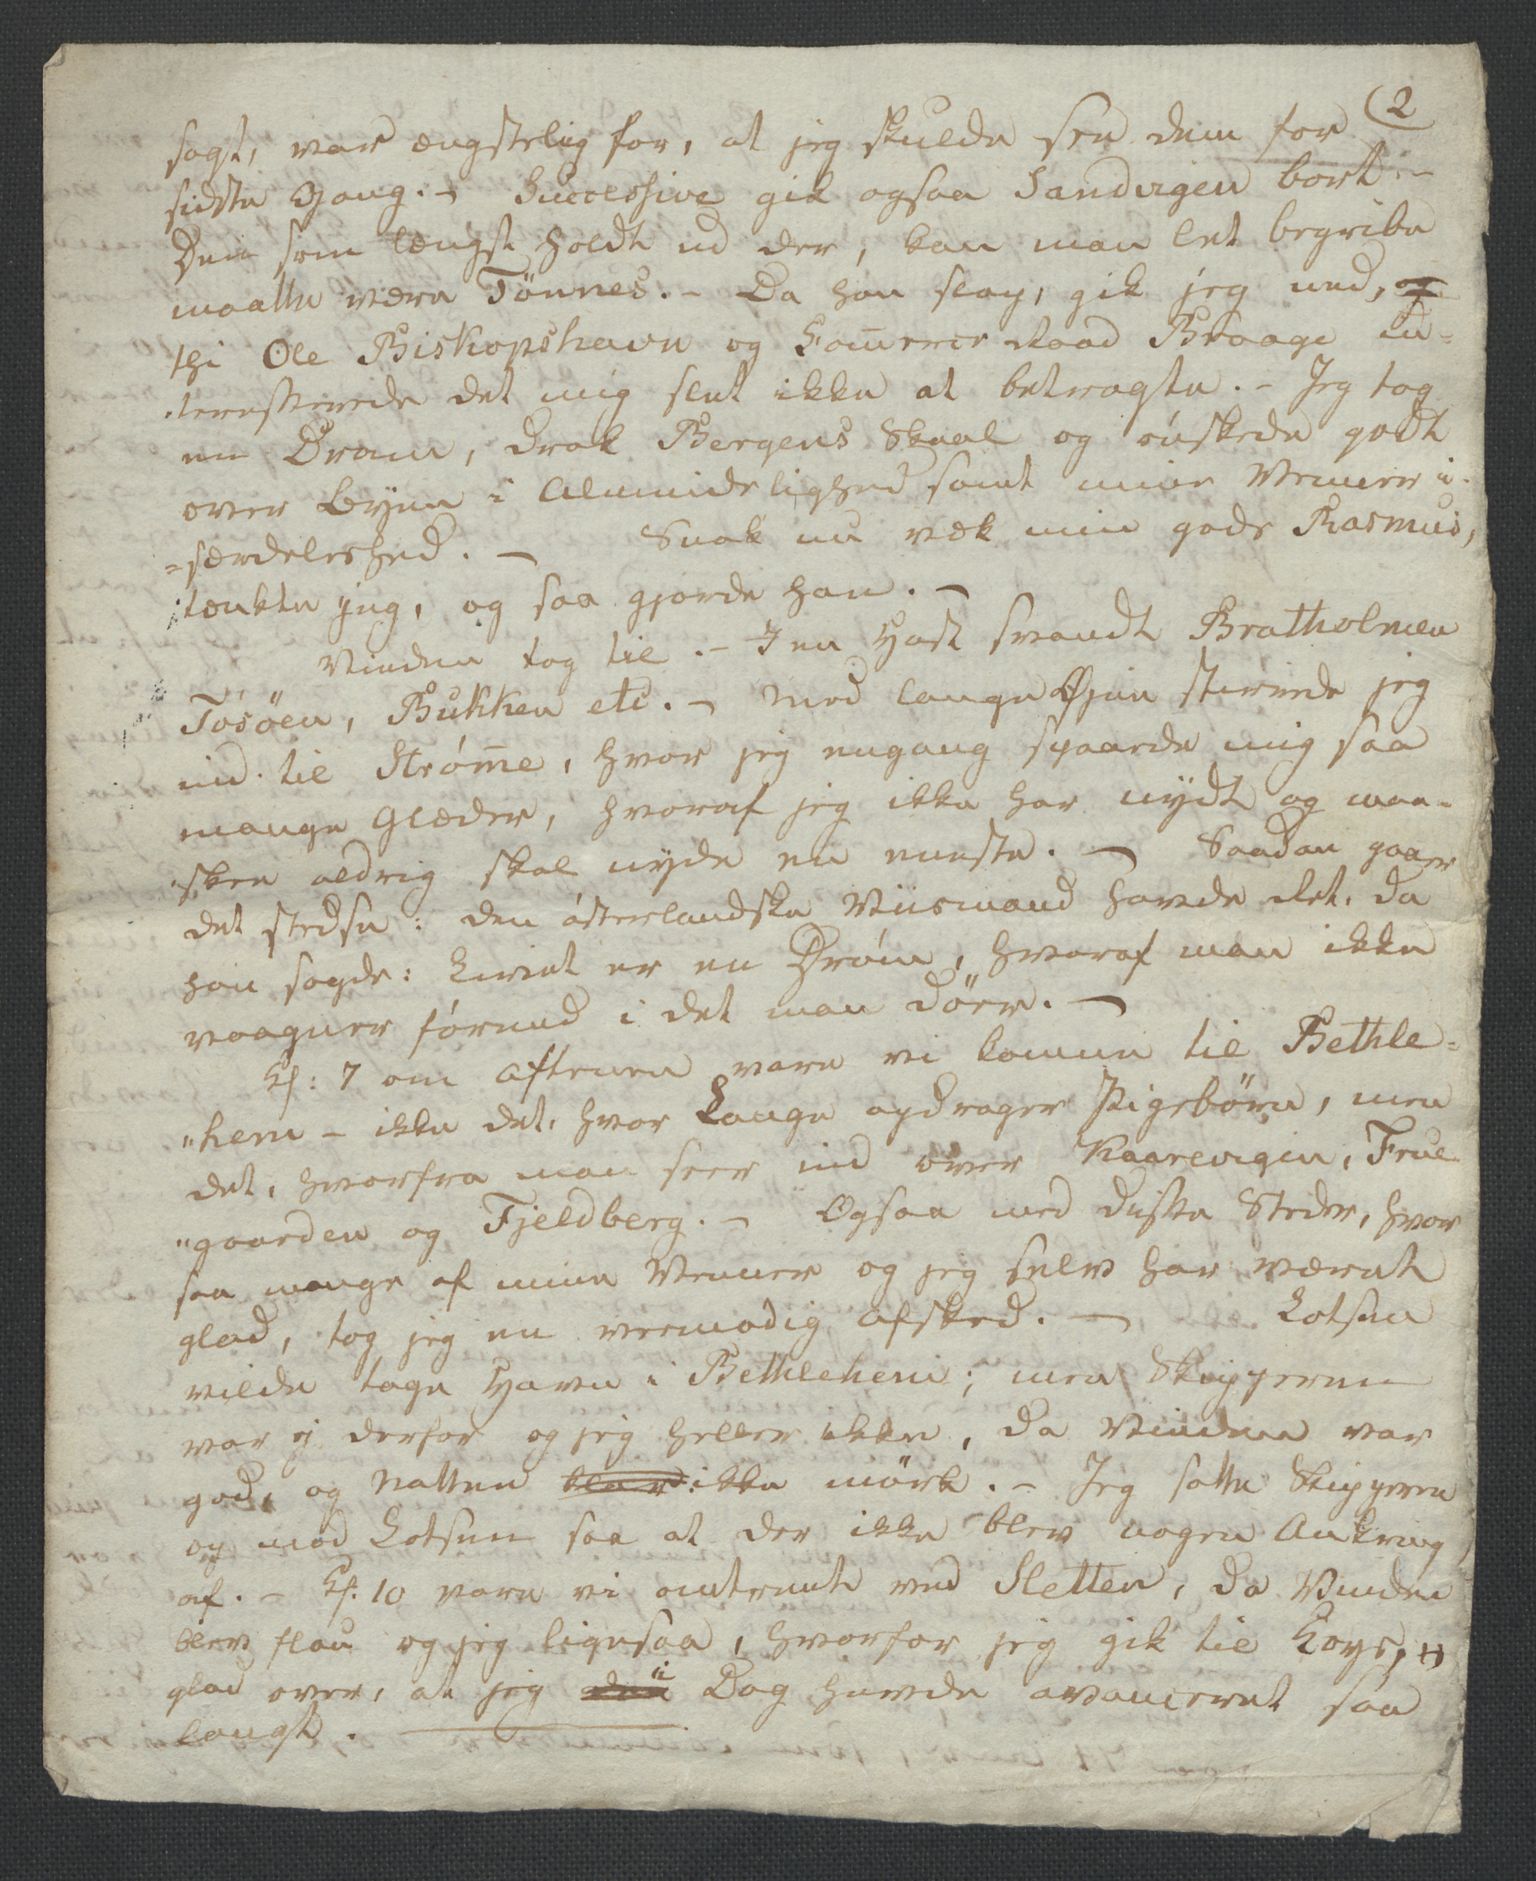 2
sagt, var ængstelig for, at jeg skulde see dem for
sidste Gang. – Successive gik ogsaa Sandvigen bort –
Den som længst holdt ud der, kan man let begribe
maatte være Tönnes. – Da han slap, gik jeg ned, og
thi Ole Biskopshavn og Kammerraad Braage in-
teresserede det mig slet ikke at betragte. – Jeg tog
en Dram, drak Bergens Skaal og ønskede godt
over Byen i Almindelighed samt mine Venner i-
=særdeleshed. – Snak nu væk min gode Rasmus,
tænkte jeg, og saa gjorde han. –
Vinden tog til. – I en Hast svandt Bratholmen
Tösöen, Bukken etc. – Med lange Øjne stirrede jeg
ind til Strømme, hvor jeg engang spaaede mig saa
mange Glæder, hvoraf jeg ikke har nydt og maa-
skee aldrig skal nyde en eneste. – Saadan gaaer
det stedse: den østerlandske Viismand havde Ret, da
han sagde: Livet er en Drøm, hvoraf man ikke
vaagner førend i det man döer. –
Kl: 7 om Aftenen vare vi komne til Bethle=
"hem – ikke det, hvor Lange opdrager Pigebörn, men
det, hvorfra man seer ind over Kaarevigen, Frue
"gaarden og Fjeldberg. – Ogsaa med disse Steder, hvor
saa mange af mine Venner og jeg selv har været
glad, tog jeg en veemodig Afsked. – Lotsen
vilde tage Havn i Bethlehem; men Skipperen
var ej derfor og jeg heller ikke, da Vinden var
god, og Natten klar ikke mörk. – Jeg satte Skipperen
op mod Lotsen saa at der ikke blev nogen Ankring
af. – Kl: 10 vare vi omtrent ved Sletten, da Vinden
blev flau og jeg ligesaa, hvorfor jeg gik til Koys,
glad over, at jeg i Dag havde avanceret saa
langt.